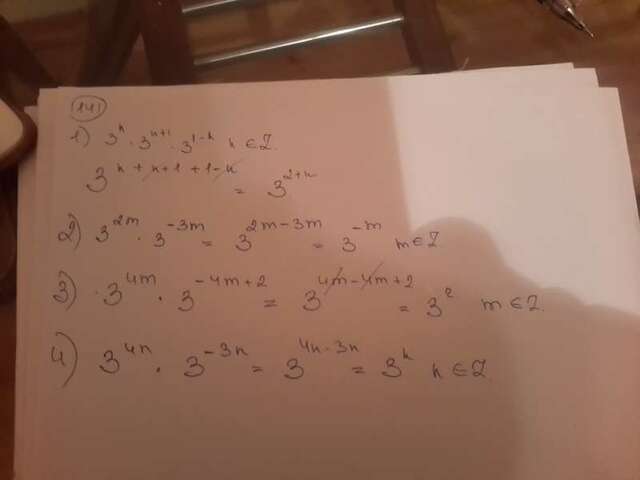 141
1) 3ⁿ · 3ⁿ⁺¹ · 3¹⁻ⁿ n ∈ Z.
3ⁿ ⁺ ⁿ ⁺ ¹ ⁺ ¹ ⁻ ⁿ = 3²⁺ⁿ
2) 3^2m · 3^-3m = 3^2m-3m = 3^-m m ∈ Z
3) · 3^4m · 3^-4m+2 = 3^4m-4m+2 = 3² m ∈ Z.
4) 3^4n · 3^-3n = 3^4n-3n = 3ⁿ n ∈ Z.